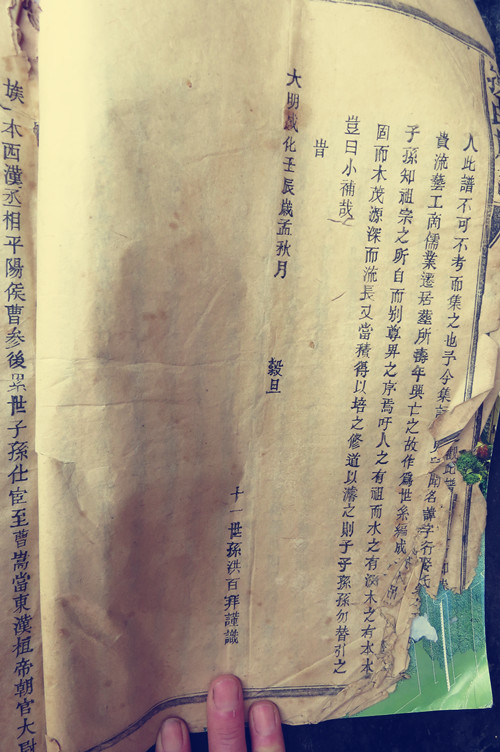 人此譜不可不考而集之也予今集
貴流藝工商儒業遷居塟所壽年興亡之故作爲世系編成
子孫知祖宗之所自而别尊畀之序焉吁人之有祖而水之有源木之有本木
固而木茂源深而流長又當積得以培之修道以濬之則子子孫孫勿替引之
豈曰小補哉
旹
大明成化壬辰歲孟秋月
榖旦
十一世孫洪百拜謹識
本西漢丞相平陽侯曹參後累世子孫仕宦至曹嵩當東漢桓帝朝官大尉